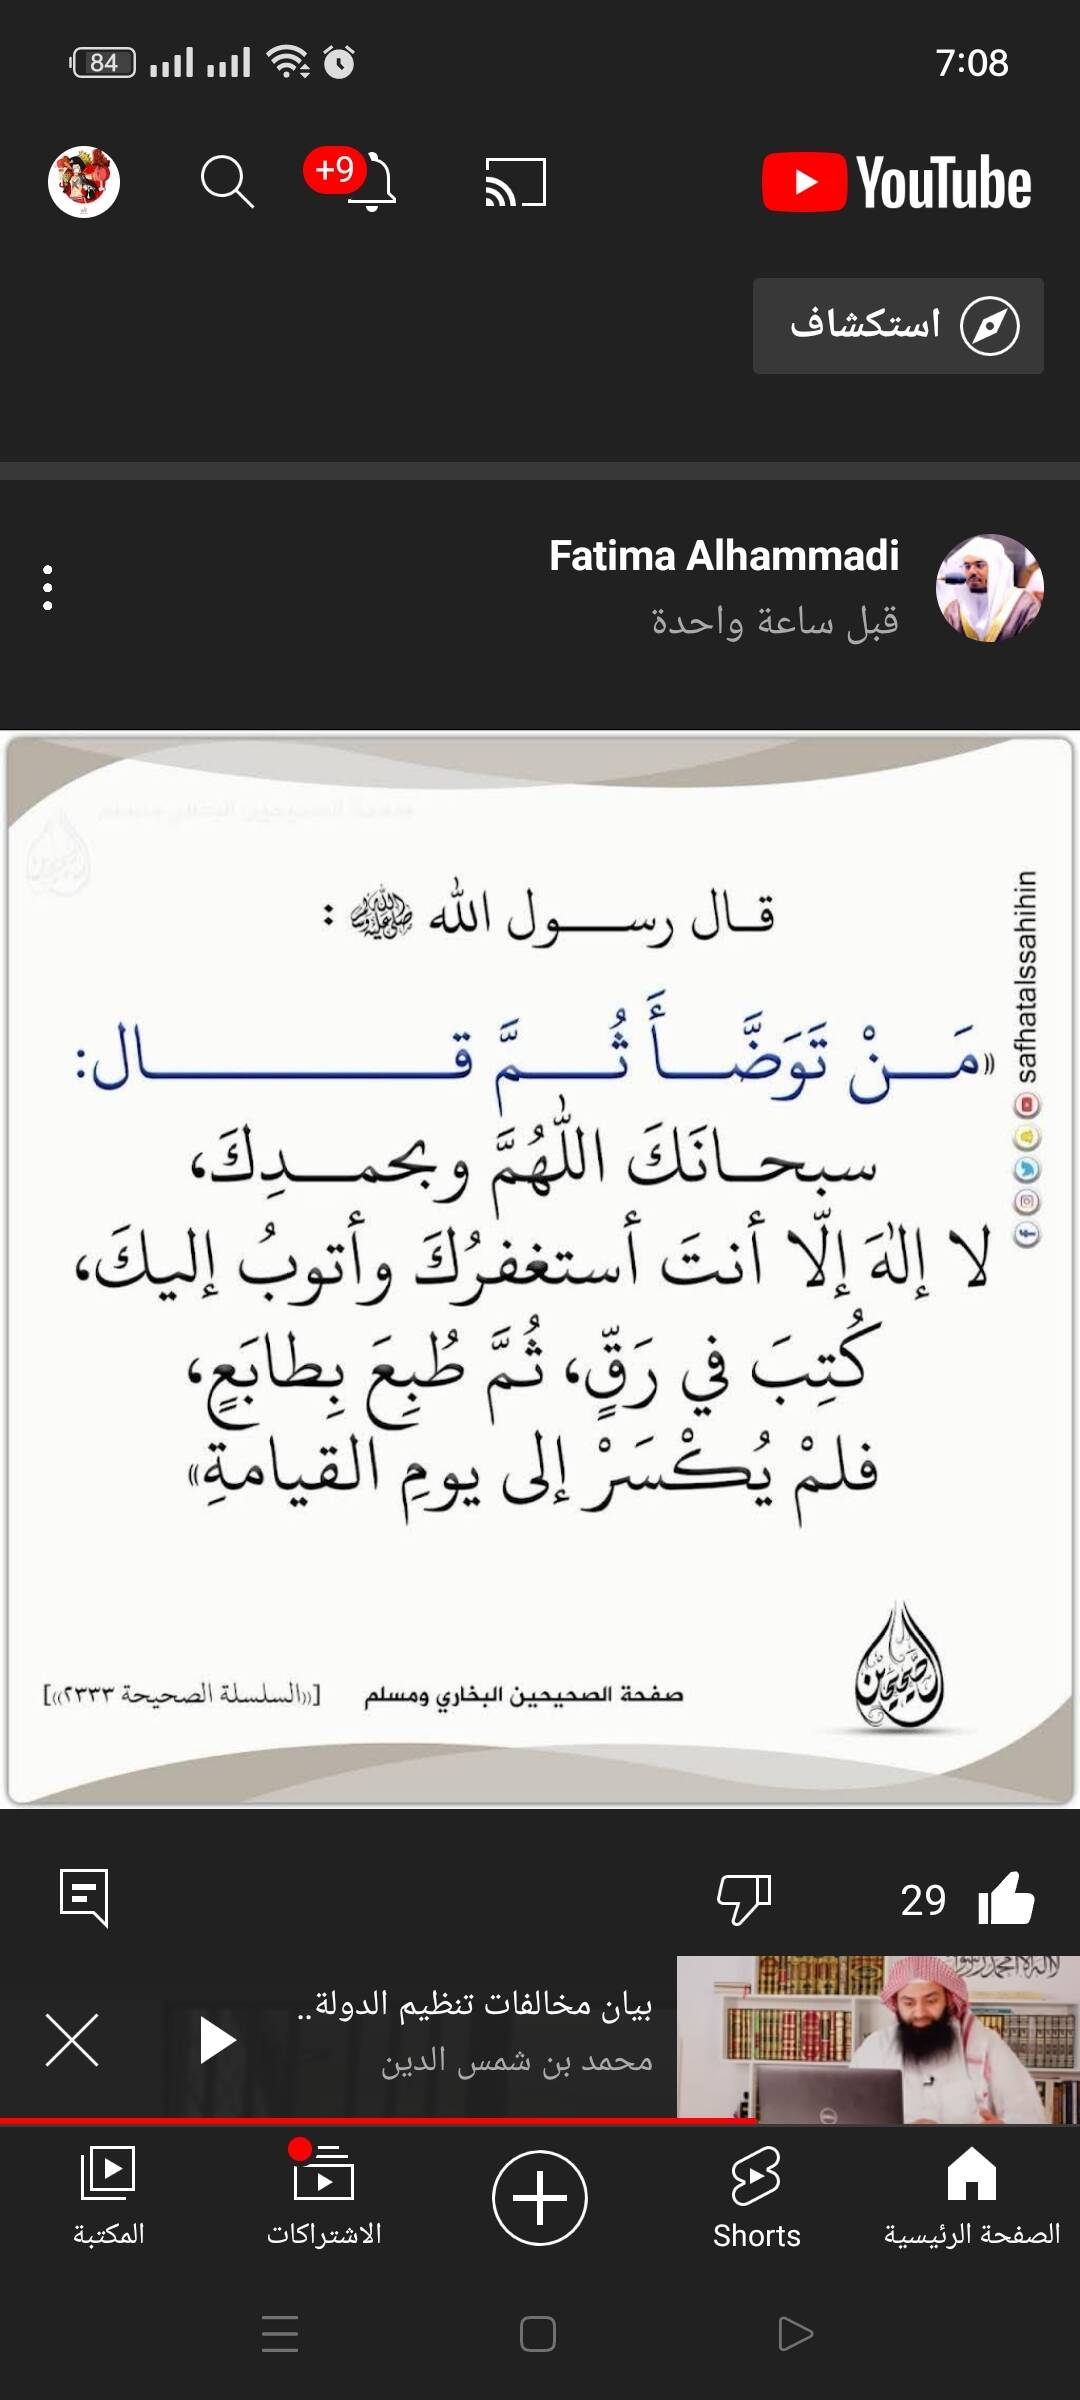 84
7:08
+9
YouTube
استكشاف
Fatima Alhammadi
قبل ساعة واحدة
صفحة الصحيحين البخاري ومسلم
safhatalssahihin
قـال رســـول الله ﷺ :
«مَـــنْ تَوَضَّـــأَ ثُـــمَّ قـــــــــــال:
سبحـانَكَ اللّهُمَّ وبحمـــدِكَ،
لا إلهَ إلّا أنتَ أستغفرُكَ وأتوبُ إليكَ،
كُتِبَ في رَقٍّ، ثُمَّ طُبِعَ بِطابَعٍ،
فلمْ يُكْسَرْ إلى يومِ القيامةِ»
صفحة الصحيحين البخاري ومسلم
[«السلسلة الصحيحة ٢٣٣٣»]
29
بيان مخالفات تنظيم الدولة..
محمد بن شمس الدين
الصفحة الرئيسية
Shorts
الاشتراكات
المكتبة